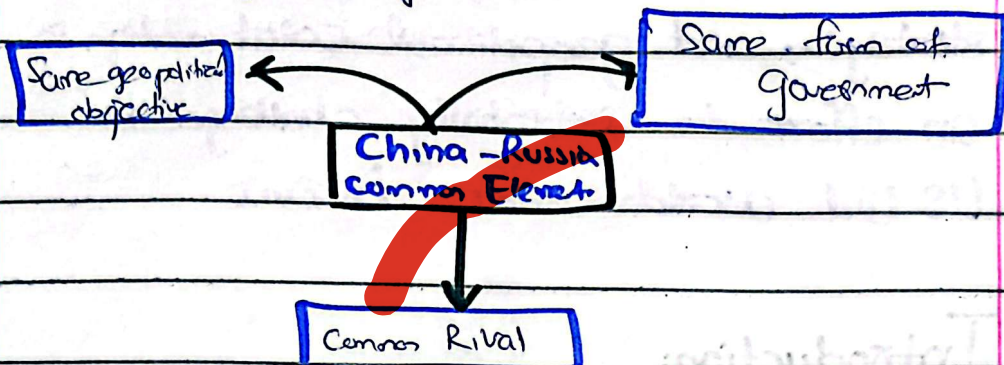 Same geopolitical
objective
Same form of
Government
China - Russia
common Element
Common Rival